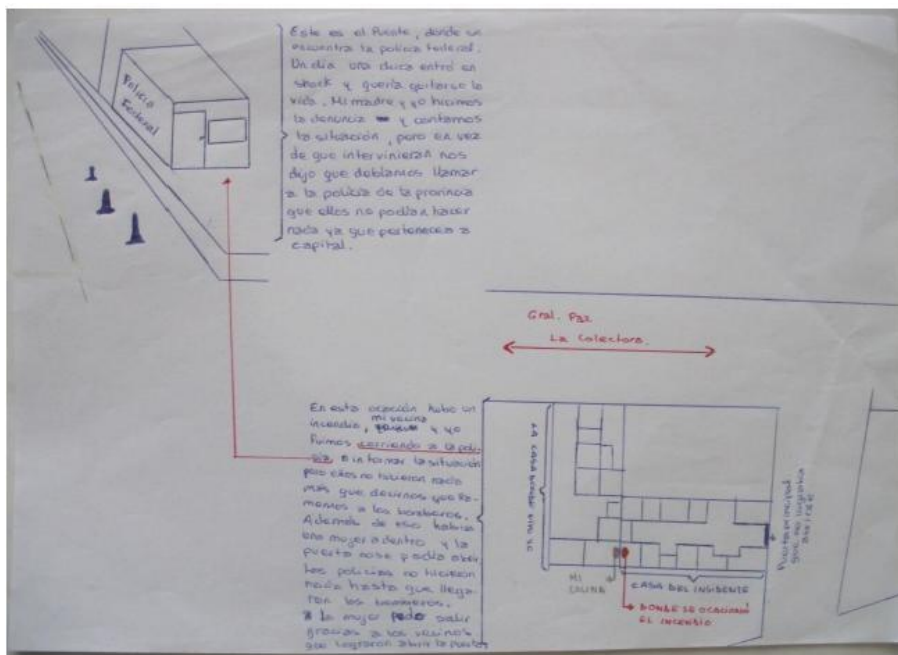 Policia
Federal
Este es el Puente, donde se
encuentra la policía federal.
Un día una chica entró en
shock y quería quitarse la
vida. Mi madre y yo hicimos
la denuncia y contamos
la situación, pero en vez
de que intervinieran nos
dijo que debíamos llamar
a la policía de la provincia
que ellos no podían hacer
nada ya que pertenecen a
capital.
Gral. Paz
La Colectora.
En esta ocación hubo un
mi vecina
incendio, y yo
fuimos corriendo a la poli-
cía, a informar la situación
pero ellos no hicieron nada
más que decirnos que lla-
memos a los bomberos.
Además de eso había
una mujer adentro y la
puerta no se podía abrir
los policías no hicieron
nada hasta que llega-
ron los bomberos.
La mujer pudo salir
gracias a los vecinos
que lograron abrir la puerta
LA CASA DONDE VIVO YO
Puerta principal
que no lograba
abrirse
MI
COCINA
CASA DEL INCIDENTE
DONDE SE OCACIONÓ
EL INCENDIO